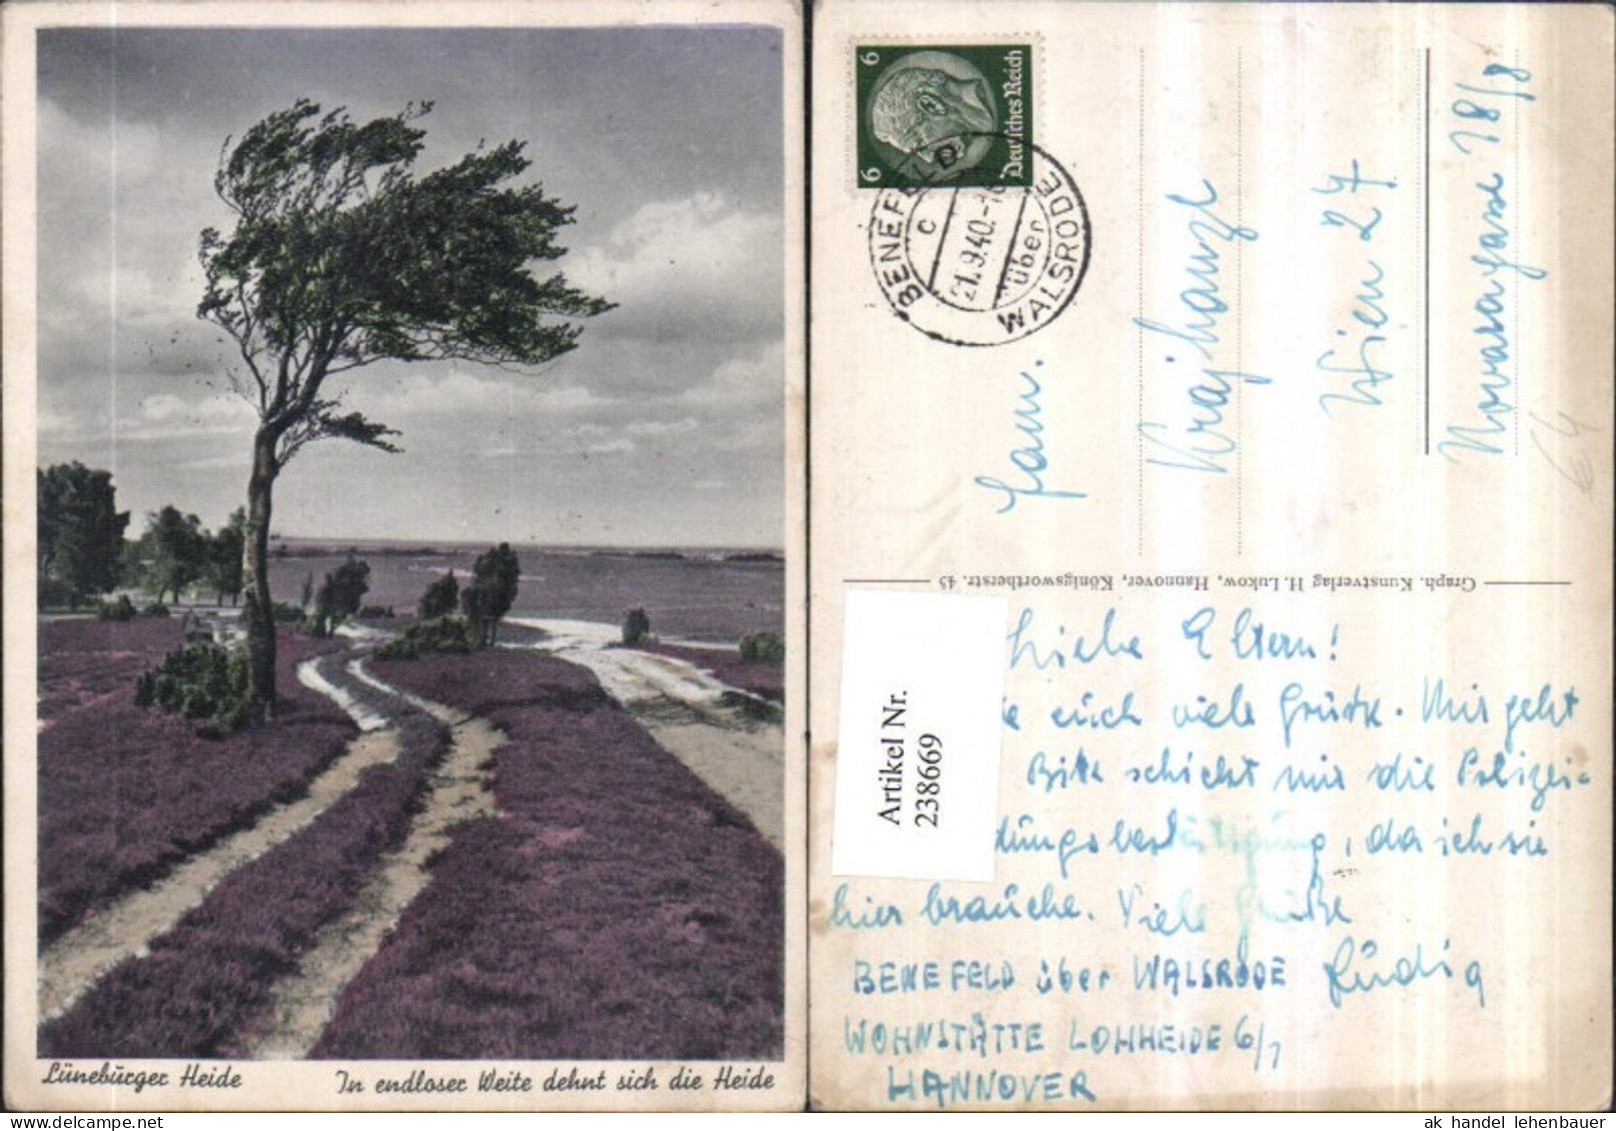 Lüneburger Heide
In endloser Weite dehnt sich die Heide
6
6
Deutsches Reich
BENEFELD
c
21.9.40.-1
über
WALSRODE
Fam.
Krajhanzl
Wien 27
Novaragasse 18/8
64
Graph. Kunstverlag H. Lukow, Hannover, Königswortherstr. 45
Artikel Nr.
238669
Liebe Eltern!
euch viele Grüße. Mir geht
Bitte schickt mir die Polizei-
dungsbestätigung, da ich sie
hier brauche. Viele Grüße
Rüdig
BENEFELD über WALSRODE
WOHNSTÄTTE LOHHEIDE 6/7
HANNOVER
ak handel lehenbauer